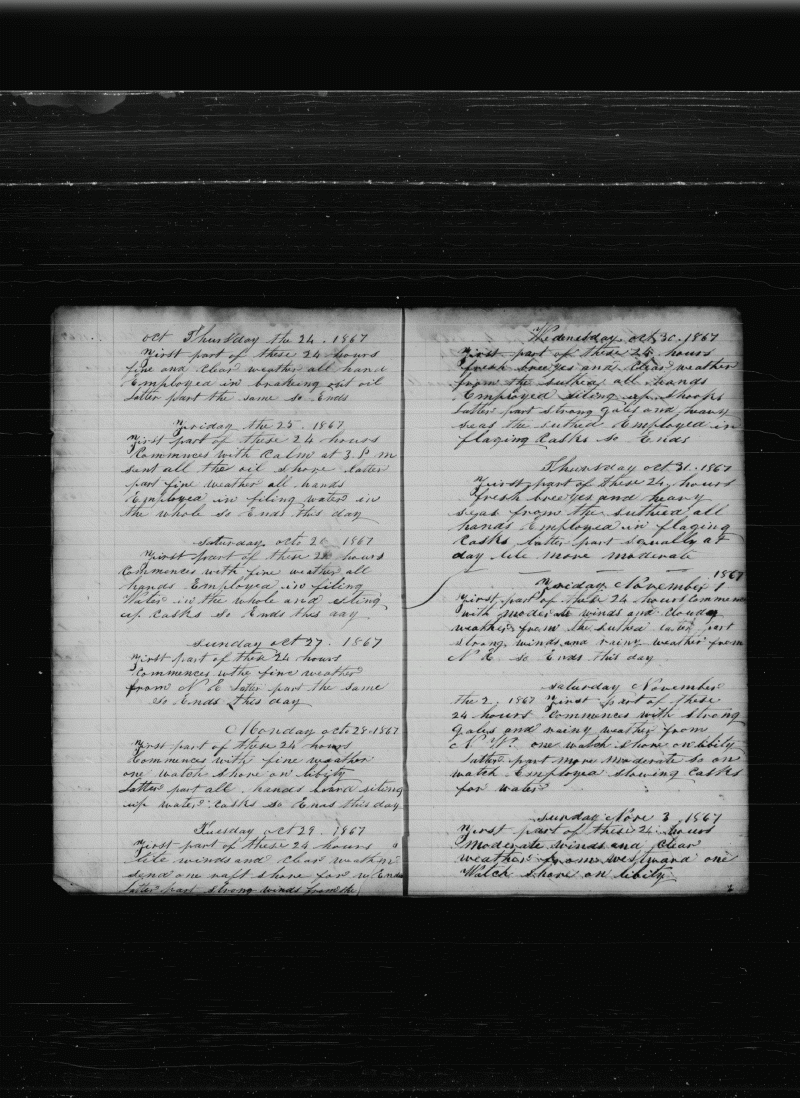 oct Thursday the 24. 1867
First part of these 24 hours
fine and clear weather all hand
Employed in braking out oil
latter part the same so Ends
Friday the 25. 1867
First part of these 24 hours
Commnces with Calm at 3. P. m
sent all the oil shore latter
part fine weather all hands
Employed in filing water in
the whole so Ends this day
saturday oct 26 1867
First part of these 24 hours
Commences with fine weather all
hands Employed in filing
Water in the whole and siting
up Casks so Ends this day
sunday oct 27. 1867
First part of these 24 hours
Commences withe fine weather
from N E latter part the same
so Ends this day
Monday oct 28 1867
First part of these 24 hours
Commences with fine weather
one watch shore on libity
Latter part all hands board siting
up water Casks so Ends this day
Tuesday oct 29. 1867
First part of these 24 hours
lite winds and clear weather
send one raft shore for w Ends
latter part strong winds from the
Wednesday oct 30. 1867
First part of these 24 hours
fresh breezes and Clear weather
from the suthed all hands
Employed siting up shooks
latter part strong gales and heavy
seas the suthed Employed in
flaging Casks so Ends
Thursday oct 31. 1867
First part of these 24 hours
fresh breezes and heavy
seas from the suthed all
hands Employed in flaging
Casks latter part squally at
day lite more moderate
Friday November 1 1867
First part of these 24 hours Commences
with moderate winds and cloudy
weather from the suthed later part
strong winds and rainy weather from
N E. so Ends this day
saturday November
the 2. 1867 First part of these
24 hours Commences with strong
gales and rainy weather from
N W. one watch shore on libity
latter part more moderate so on
watch Employed stowing Casks
for water
sunday Nove 3. 1867
First part of these 24 hours
Moderate winds and clear
weather from westward one
Watch shore on libity